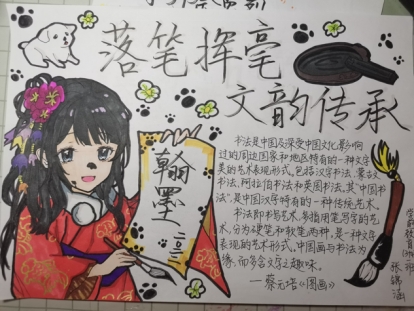 落笔挥毫
文韵传承
翰墨
书法是中国及深受中国文化影响
过的周边国家和地区特有的一种文字
美的艺术表现形式,包括汉字书法、蒙古
书法、阿拉伯书法和英图书法。其"中国书
法",是中国汉字特有的一种传统艺术。
书法即书写艺术,多指用笔写字的艺
术,分为硬笔和软笔两种,是一种文字
表现的艺术形式,中国画与书法为
缘,而多含文字之趣味。
—蔡元培《图画》